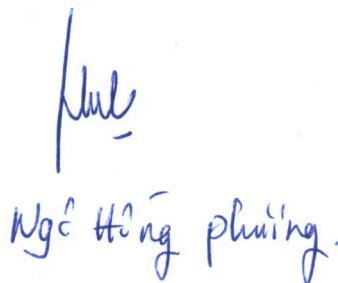 Ngô Hồng phương.